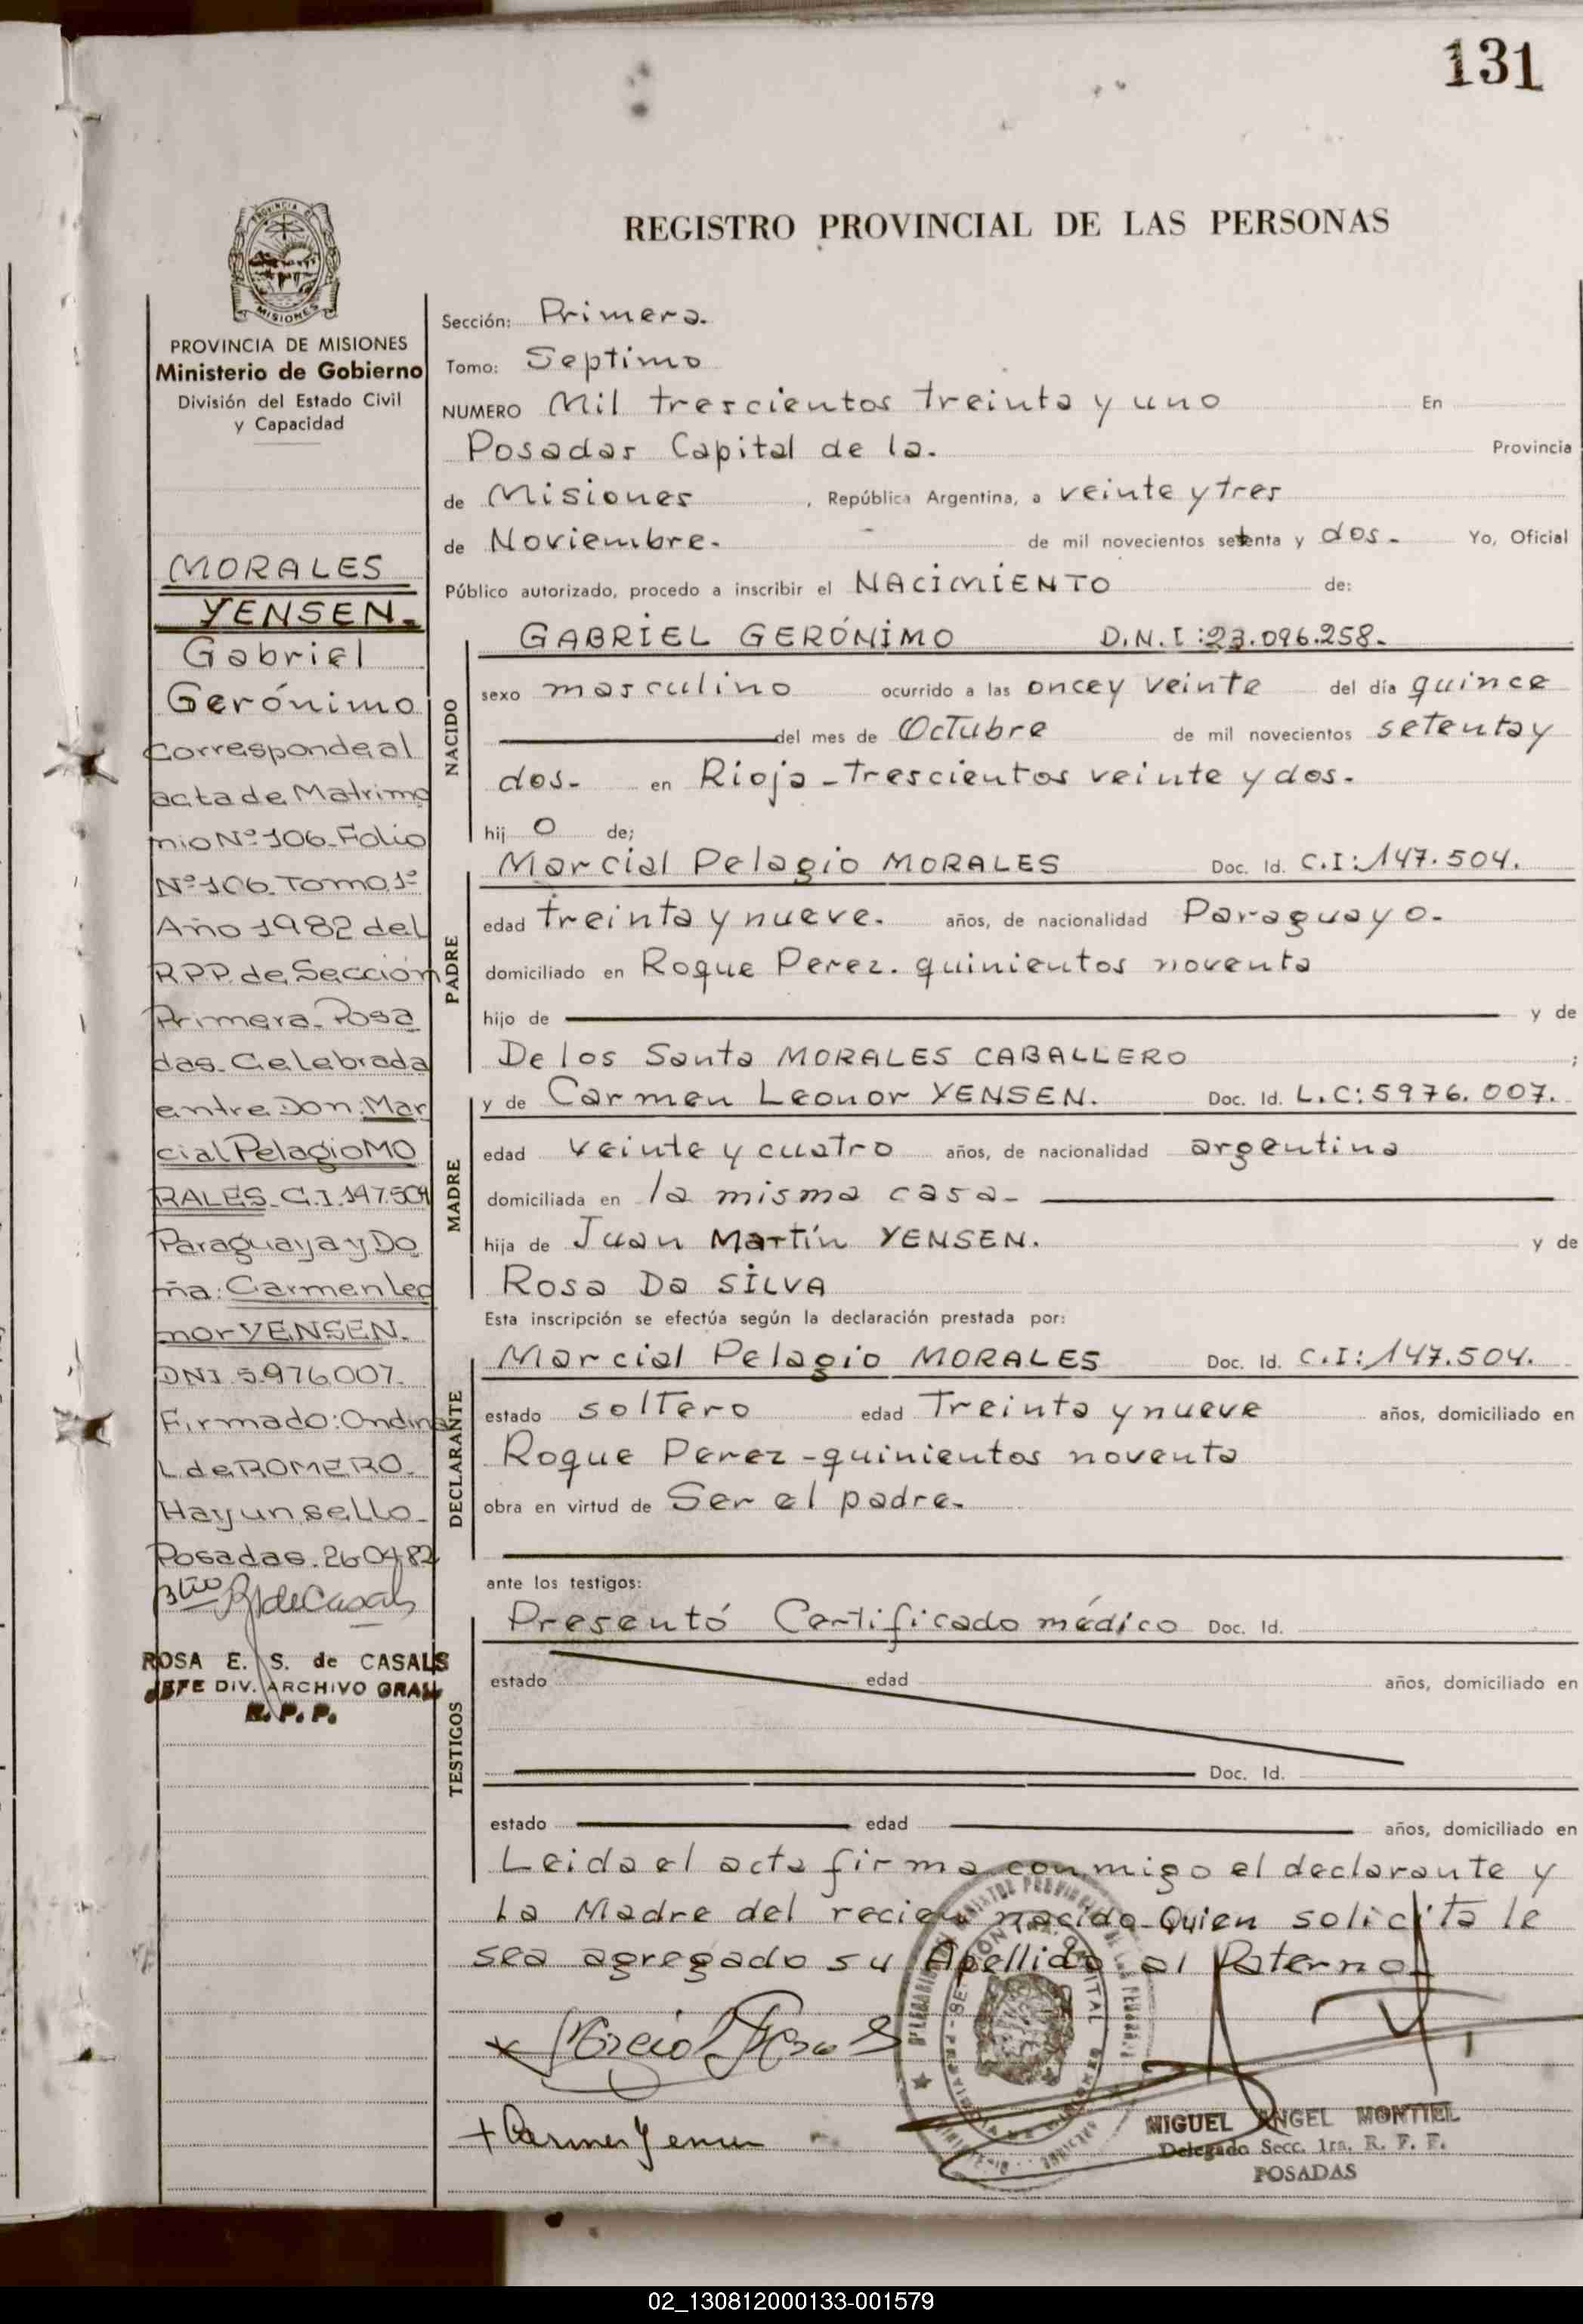 131
REGISTRO PROVINCIAL DE LAS PERSONAS
PROVINCIA DE
MISIONES
PROVINCIA DE MISIONES
Ministerio de Gobierno
División del Estado Civil
y Capacidad
MORALES
YENSEN.
Gabriel
Gerónimo
Corresponde al
acta de Matrimo
nio Nº 106. Folio
Nº 106. Tomo 1º
Año 1982 del
R.P.P. de Sección
Primera. Posa
das. Celebrada
entre Don: Mar
cial Pelagio MO
RALES. C.I. 147.504
Paraguaya y Do
ña: Carmen Leo
nor YENSEN.
DNI 5.976.007.
Firmado: Ondina
L de ROMERO.
Hay un sello.
Posadas. 26-04-82
ROSA E. S. de CASALS
JEFE DIV. ARCHIVO GRAL
R. P. P.
Sección: Primera.
Tomo: Septimo
NUMERO Mil trescientos treinta y uno En
Posadas Capital de la. Provincia
de Misiones , República Argentina, a veinte y tres
de Noviembre. de mil novecientos setenta y dos. Yo, Oficial
Público autorizado, procedo a inscribir el NACIMIENTO de:
NACIDO
GABRIEL GERÓNIMO D.N.I:23.096.258.
sexo masculino ocurrido a las once y veinte del día quince
del mes de Octubre de mil novecientos setenta y
dos. en Rioja - trescientos veinte y dos.
hij o de;
PADRE
Marcial Pelagio MORALES Doc. Id. C.I: 147.504.
edad treinta y nueve. años, de nacionalidad Paraguayo.
domiciliado en Roque Perez. quinientos noventa
hijo de y de
De los Santa MORALES CABALLERO ;
MADRE
y de Carmen Leonor YENSEN. Doc. Id. L.C: 5976.007.
edad veinte y cuatro años, de nacionalidad argentina
domiciliada en la misma casa-
hija de Juan Martín YENSEN. y de
Rosa Da SILVA
Esta inscripción se efectúa según la declaración prestada por:
DECLARANTE
Marcial Pelagio MORALES Doc. Id. C.I: 147.504.
estado soltero edad Treinta y nueve años, domiciliado en
Roque Perez - quinientos noventa
obra en virtud de Ser el padre.
ante los testigos:
TESTIGOS
Presentó Certificado médico Doc. Id.
estado edad años, domiciliado en
Doc. Id.
estado edad años, domiciliado en
Leida el acta firma conmigo el declarante y
La Madre del recien nacido. Quien solicita le
sea agregado su Apellido al Paterno.
+ Carmen Yensen
MIGUEL ANGEL MONTIEL
Delegado Secc. 1ra. R. P. P.
POSADAS
02_130812000133-001579